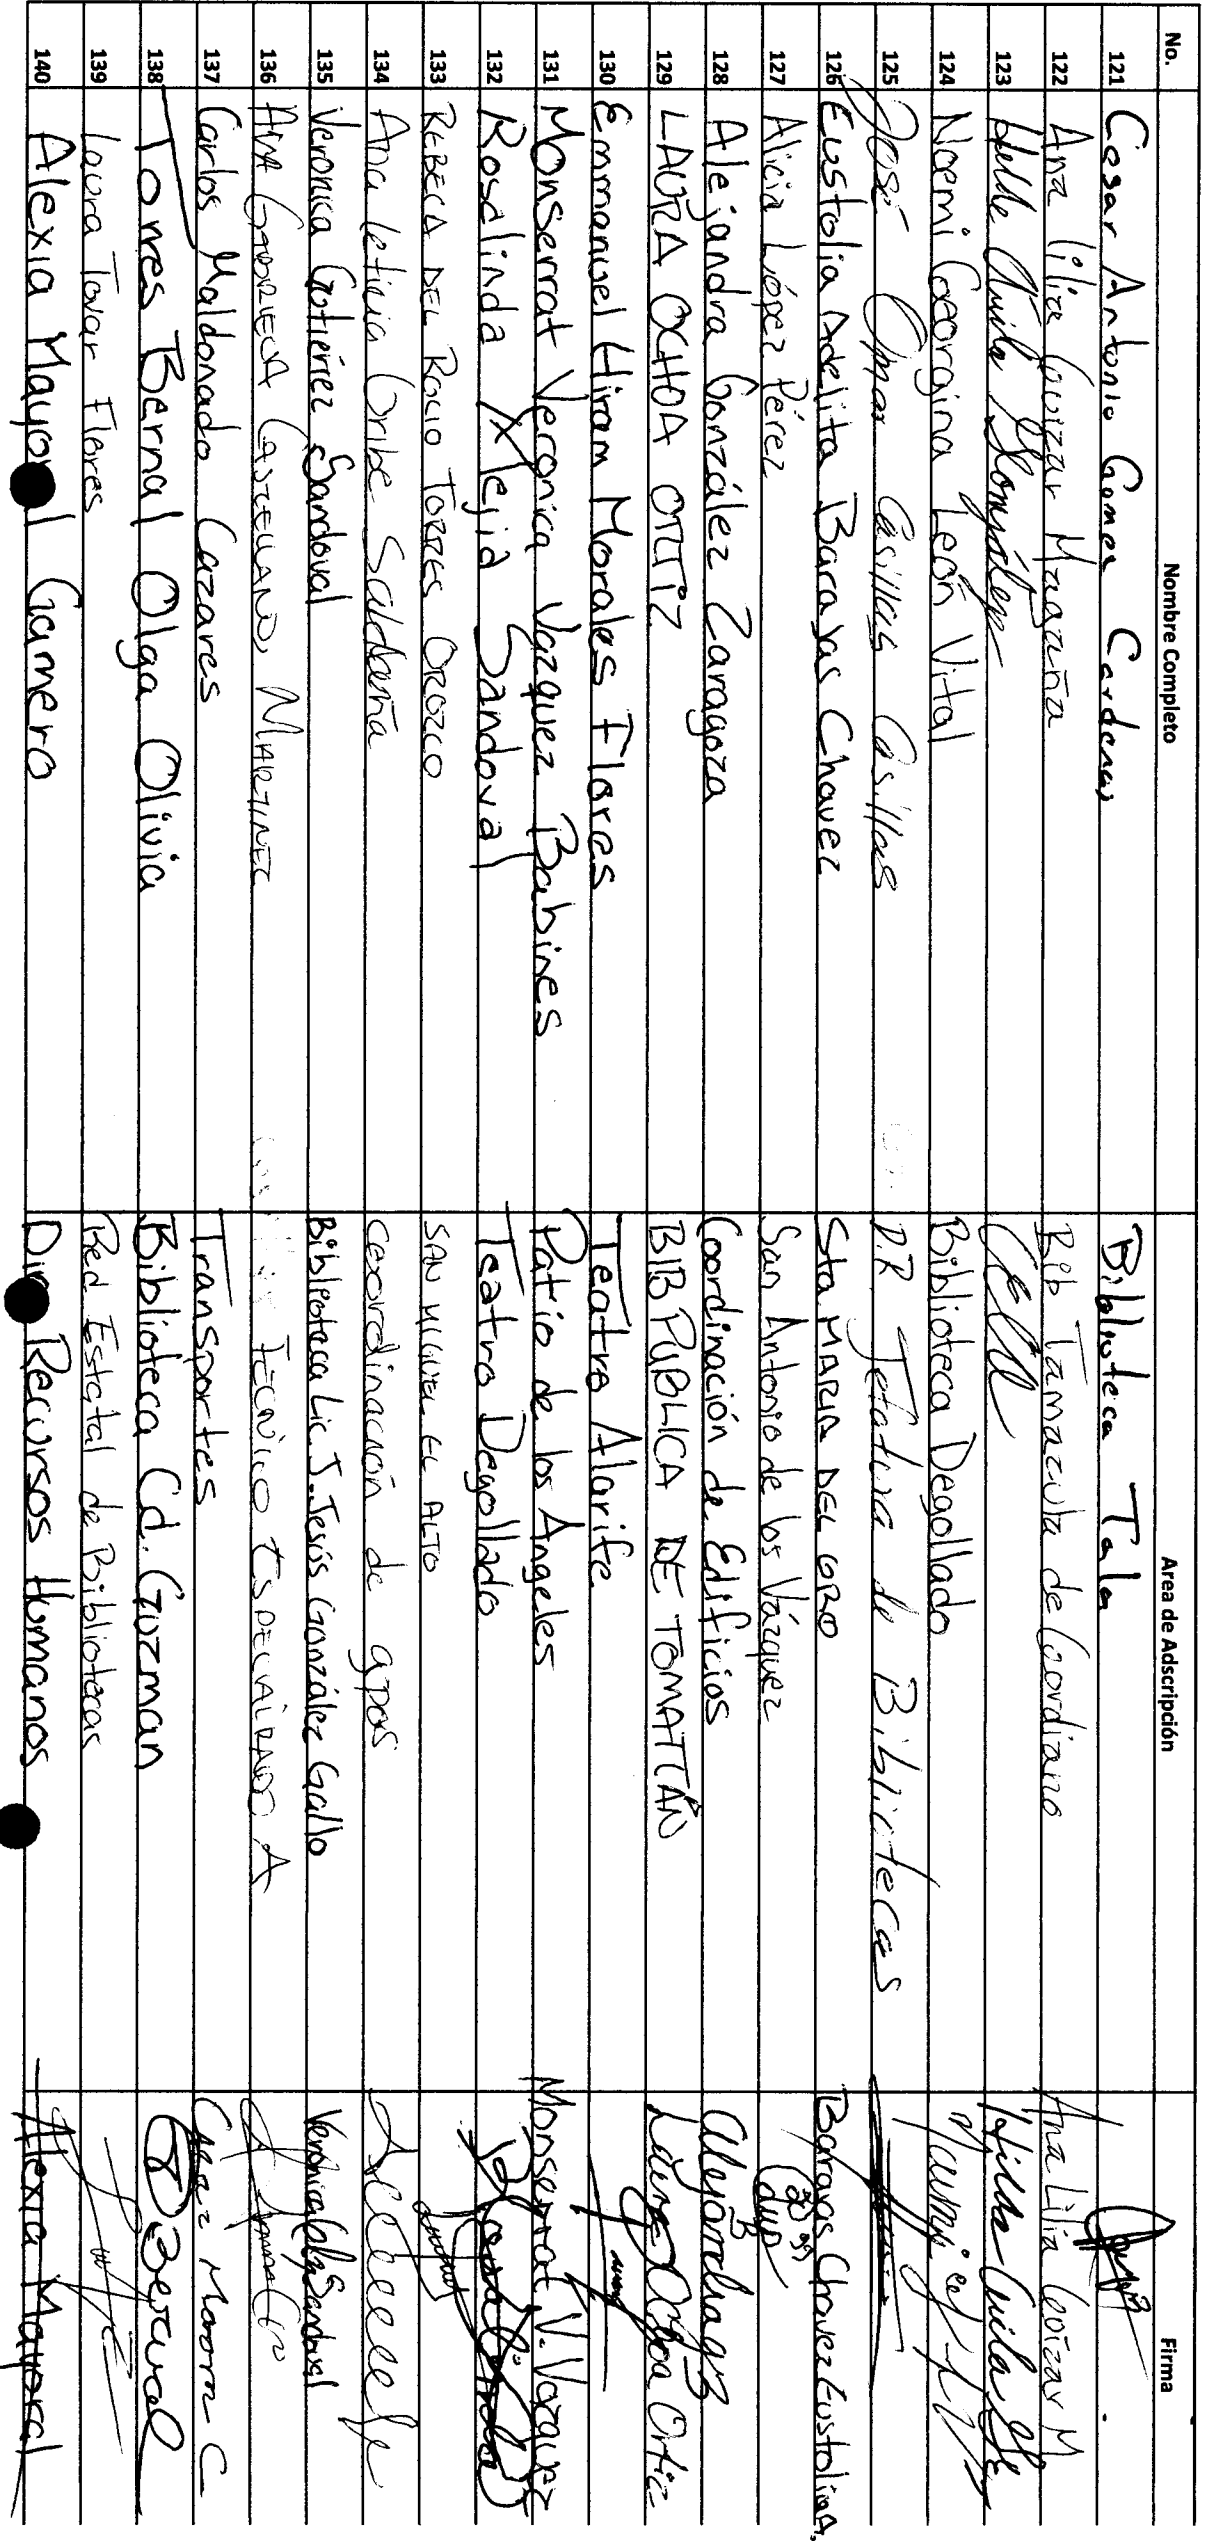 No. Nombre Completo Area de Adscripción Firma
121 Cesar Antonio Gomez Cardenas Biblioteca Tala
122 Ana Lilia Guizar Magaña Bib Tamazula de Gordiano Ana Lilia Guizar M
123 Hilda Avila González Hilda Avila
124 Noemi Georgina León Vital Biblioteca Degollado
125 José Omar Casillas Casillas D.R Jefatura de Bibliotecas
126 Eustolia Adelita Barajas Chavez Sta MARIA DEL ORO Barajas Chavez Eustolia A.
127 Alicia López Pérez San Antonio de los Vázquez
128 Alejandra González Zaragoza Coordinación de Edificios Alejandra
129 LAURA OCHOA ORTIZ BIB PUBLICA DE TOMATLÁN Laura Ochoa Ortiz
130 Emmanuel Hiram Morales Flores Teatro Alarife
131 Monserrat Veronica Vazquez Babines Patio de los Angeles Monserrat V. Vazquez
132 Rosalinda Mejia Sandoval Teatro Degollado
133 REBECA DEL ROCIO TORRES OROZCO SAN MIGUEL EL ALTO
134 Ana leticia Uribe Saldaña Coordinación de gpos
135 Veronica Gutiérrez Sandoval Biblioteca Lic. J. Jesús González Gallo Veronica Sandoval
136 ANA GABRIELA CASTELLANOS MARTINEZ TECNICO ESPECIALIZADO A
137 Carlos Maldonado Cazares Transportes
138 Torres Bernal Olga Olivia Biblioteca Cd. Guzman Bernal
139 Laura Tovar Flores Red Estatal de Bibliotecas
140 Alexia Mayoral Gamero Dir Recursos Humanos Alexia Mayoral